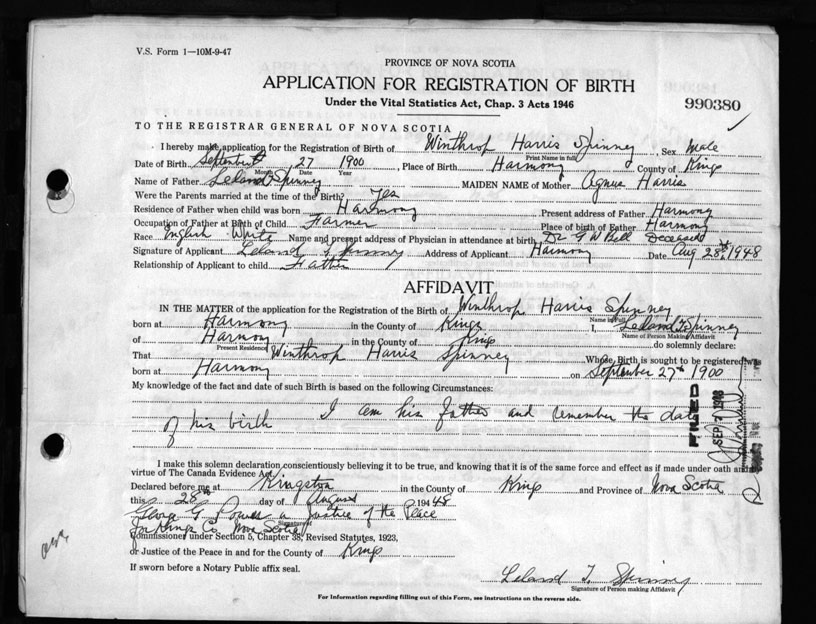 V.S. Form 1—10M-9-47
PROVINCE OF NOVA SCOTIA
APPLICATION FOR REGISTRATION OF BIRTH
Under the Vital Statistics Act, Chap. 3 Acts 1946
990380
TO THE REGISTRAR GENERAL OF NOVA SCOTIA
I hereby make application for the Registration of Birth of Winthrop Harris Spinney, Sex Male
Print Name in full
Date of Birth September 27 1900, Place of Birth Harmony County of Kings
Month Date Year
Name of Father Leland Spinney MAIDEN NAME of Mother Agnes Harris
Were the Parents married at the time of the Birth? Yes
Residence of Father when child was born Harmony Present address of Father Harmony
Occupation of Father at Birth of Child Farmer Place of birth of Father Harmony
Race English White Name and present address of Physician in attendance at birth Dr G W Bell Deceased
Signature of Applicant Leland T Spinney Address of Applicant Harmony Date Aug 28th 1948
Relationship of Applicant to child Father
AFFIDAVIT
IN THE MATTER of the application for the Registration of the Birth of Winthrop Harris Spinney
Name in Full
born at Harmony in the County of Kings I, Leland T Spinney
Name of Person Making Affidavit
of Harmony in the County of Kings do solemnly declare:
Present Residence
That Winthrop Harris Spinney Whose Birth is sought to be registered was
born at Harmony on September 27th 1900
My knowledge of the fact and date of such Birth is based on the following Circumstances:
I am his father and remember the date
of his birth
FILED
SEP 7 1948
I make this solemn declaration conscientiously believing it to be true, and knowing that it is of the same force and effect as if made under oath and
virtue of The Canada Evidence Act.
Declared before me at Kingston in the County of Kings and Province of Nova Scotia
this 28th day of August 1948
George G Power a Justice of the Peace
for Kings Co. Nova Scotia
Signature of
Commissioner under Section 5, Chapter 38, Revised Statutes, 1923,
or Justice of the Peace in and for the County of Kings
If sworn before a Notary Public affix seal.
Leland T. Spinney
Signature of Person making Affidavit
For Information regarding filling out of this Form, see instructions on the reverse side.